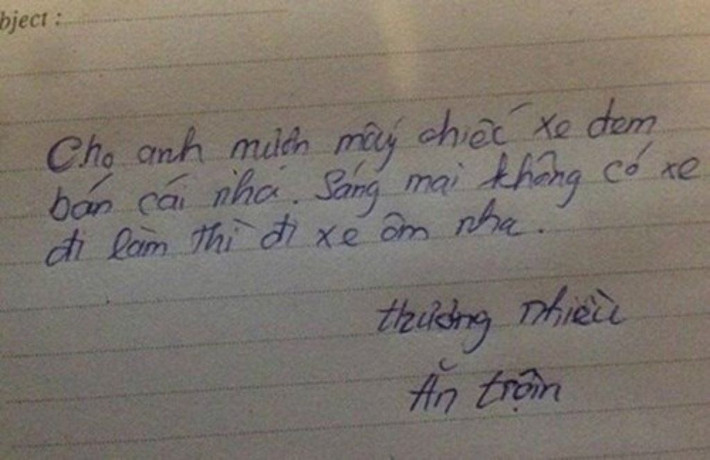 bject :
Cho anh mượn mấy chiếc xe đem
bán cái nhá. Sáng mai không có xe
đi làm thì đi xe ôm nha.
thương nhiều
Ăn trộm